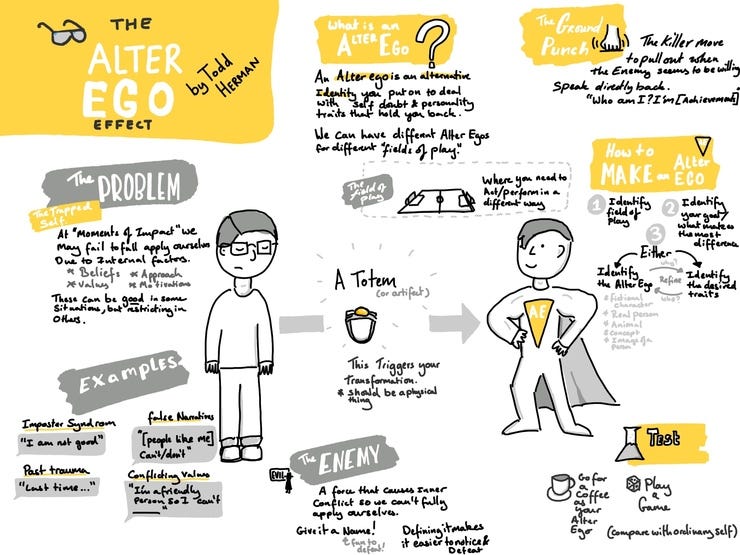 THE
ALTER
EGO
EFFECT
by Todd
HERMAN
What is an
ALTER EGO
?
An Alter ego is an alternative
Identity you put on to deal
with self doubt & personality
traits that hold you back.
We can have different Alter Egos
for different "fields of play."
The Ground
Punch
The Killer move
to pull out when
the Enemy seems to be willing
Speak directly back.
"Who am I? I'm [Achievement]
The PROBLEM
The Trapped
Self
At "Moments of Impact" we
May fail to full apply ourselves
Due to Internal factors.
* Beliefs * Approach
* Values * Motivations
These can be good in some
Situations, but restricting in
Others.
The field of
play
Where you need to
Act/perform in a
different way
How to
MAKE an Alter
EGO
1 Identify
field of
Play
2 Identify
your goal
what makes
the most
difference
3
Either
Identify
the Alter Ego
* fictional
character
* Real person
* Animal
* Concept
* Image of a
person
why?
Refine
who?
Identify
the desired
traits
A Totem
(or artifact)
This Triggers your
Transformation.
* should be a physical
thing
AE
EXamples
Imposter Syndrom
"I am not good"
false Narratives
"[people like me]
Can't/don't"
Past trauma
"Last time..."
Conflicting Values
"I'm a friendly
person so I can't
____"
EVIL
The ENEMY
A force that causes Inner
Conflict so we can't fully
apply ourselves.
Give it a Name!
fun to
defeat!
Defining it makes
it easier to notice &
Defeat
Test
Go for
a
Coffee
as your
Alter
Ego
Play
a
Game
(compare with ordinary self)